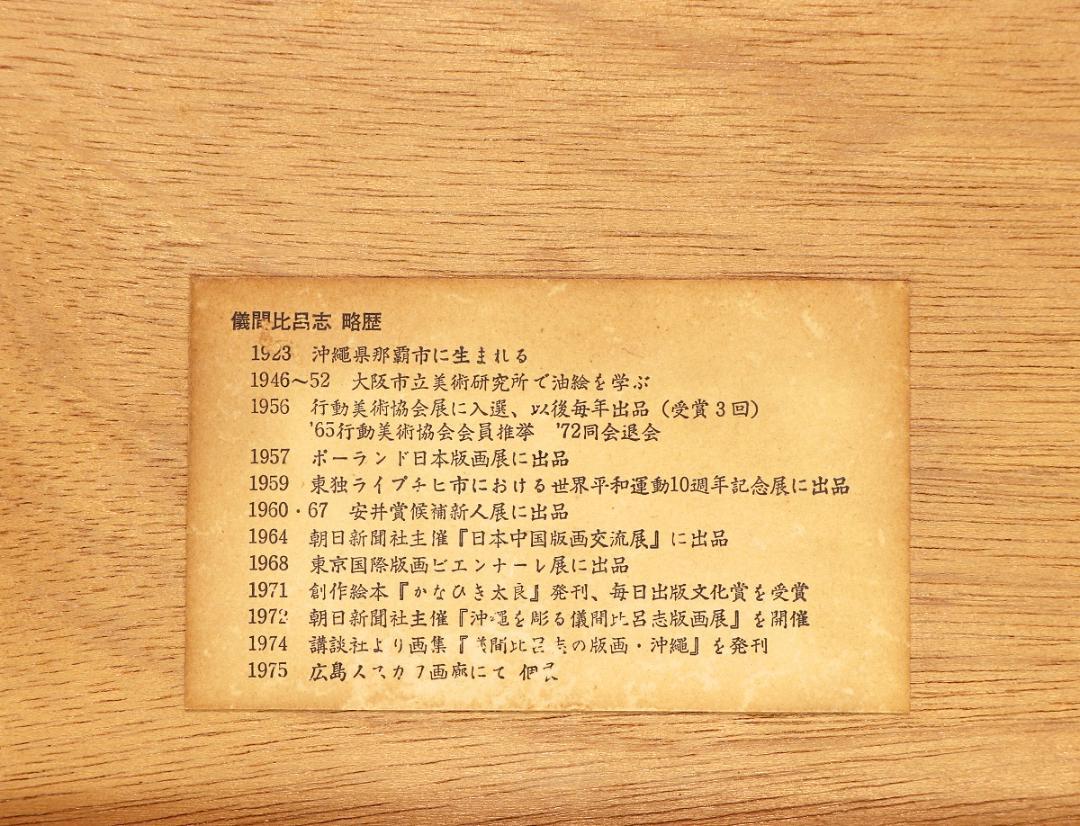 儀間比呂志 略歴
1923 沖縄県那覇市に生まれる
1946〜52 大阪市立美術研究所で油絵を学ぶ
1956 行動美術協会展に入選、以後毎年出品（受賞3回）
'65行動美術協会会員推挙 '72同会退会
1957 ポーランド日本版画展に出品
1959 東独ライプチヒ市における世界平和運動10週年記念展に出品
1960・67 安井賞候補新人展に出品
1964 朝日新聞社主催『日本中国版画交流展』に出品
1968 東京国際版画ビエンナーレ展に出品
1971 創作絵本『かなひき太良』発刊、毎日出版文化賞を受賞
1972 朝日新聞社主催『沖縄を彫る儀間比呂志版画展』を開催
1974 講談社より画集『儀間比呂志の版画・沖縄』を発刊
1975 広島 画廊にて 個展